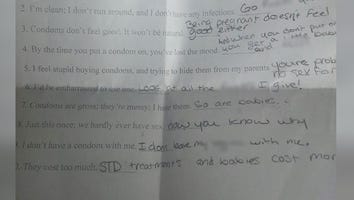 2. I'm clean; I don't run around, and I don't have any infections. GO
Being pregnant doesn't feel
3. Condoms don't feel good. It won't be natural. good either
4. By the time you put a condom on, you've lost the mood. you get a little
and
5. I feel stupid buying condoms, and trying to hide them from my parents. you're
no sex for
6. I'd be embarrassed to use one. LOOK at all the I give!
7. Condoms are gross; they're messy; I hate them. So are babies.
8. Just this once; we hardly ever have sex. now you know why
9. I don't have a condom with me. I dont have my with me.
They cost too much. STD treatments and babies cost mor